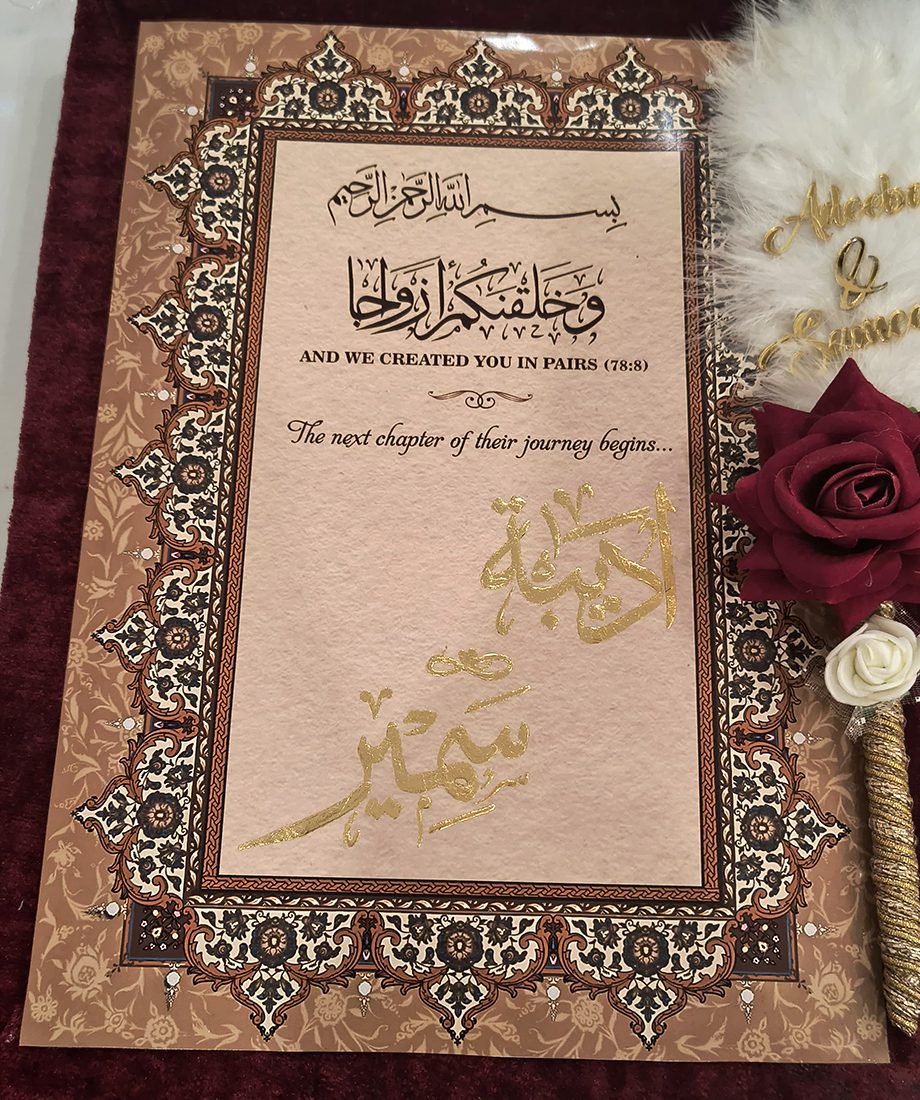 بسم الله الرحمن الرحيم
وَخَلَقْنَكُمْ أَزْوَاجًا
AND WE CREATED YOU IN PAIRS (78:8)
The next chapter of their journey begins...
اديبة
سَمِير
&